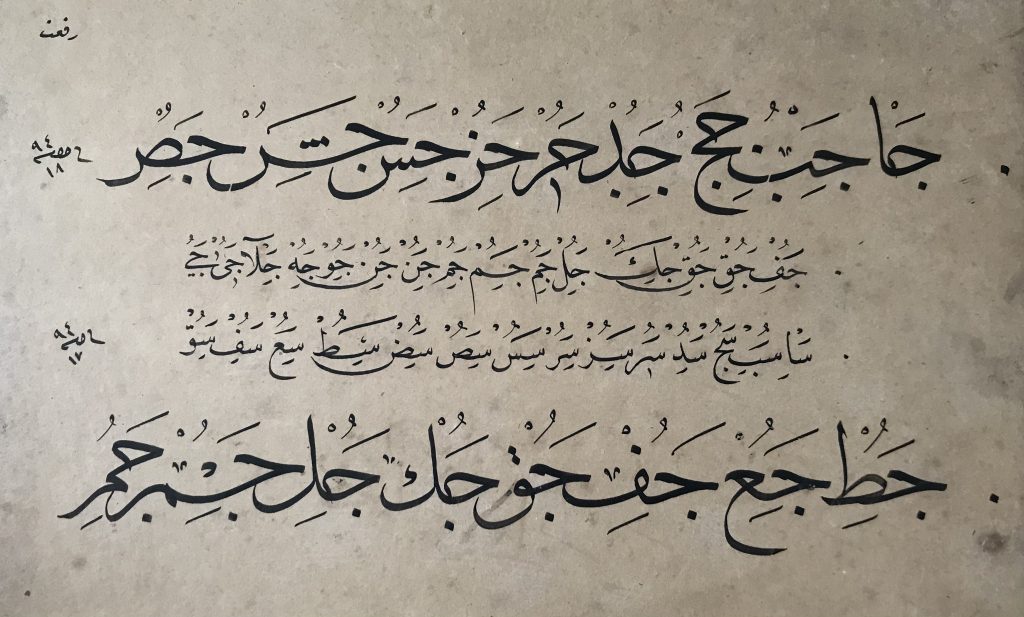 رفعت
جا جب جج جد جر جز جس جش جص
٩٤
١٨
جف جق جق جك جل جم جم جم جن جن جو جه جلا جى جے
سا سب سج سد سر سز سر سس سص سض سط سع سف سق
٩٤
١٧
جط جع جف جق جك جل جم جمر